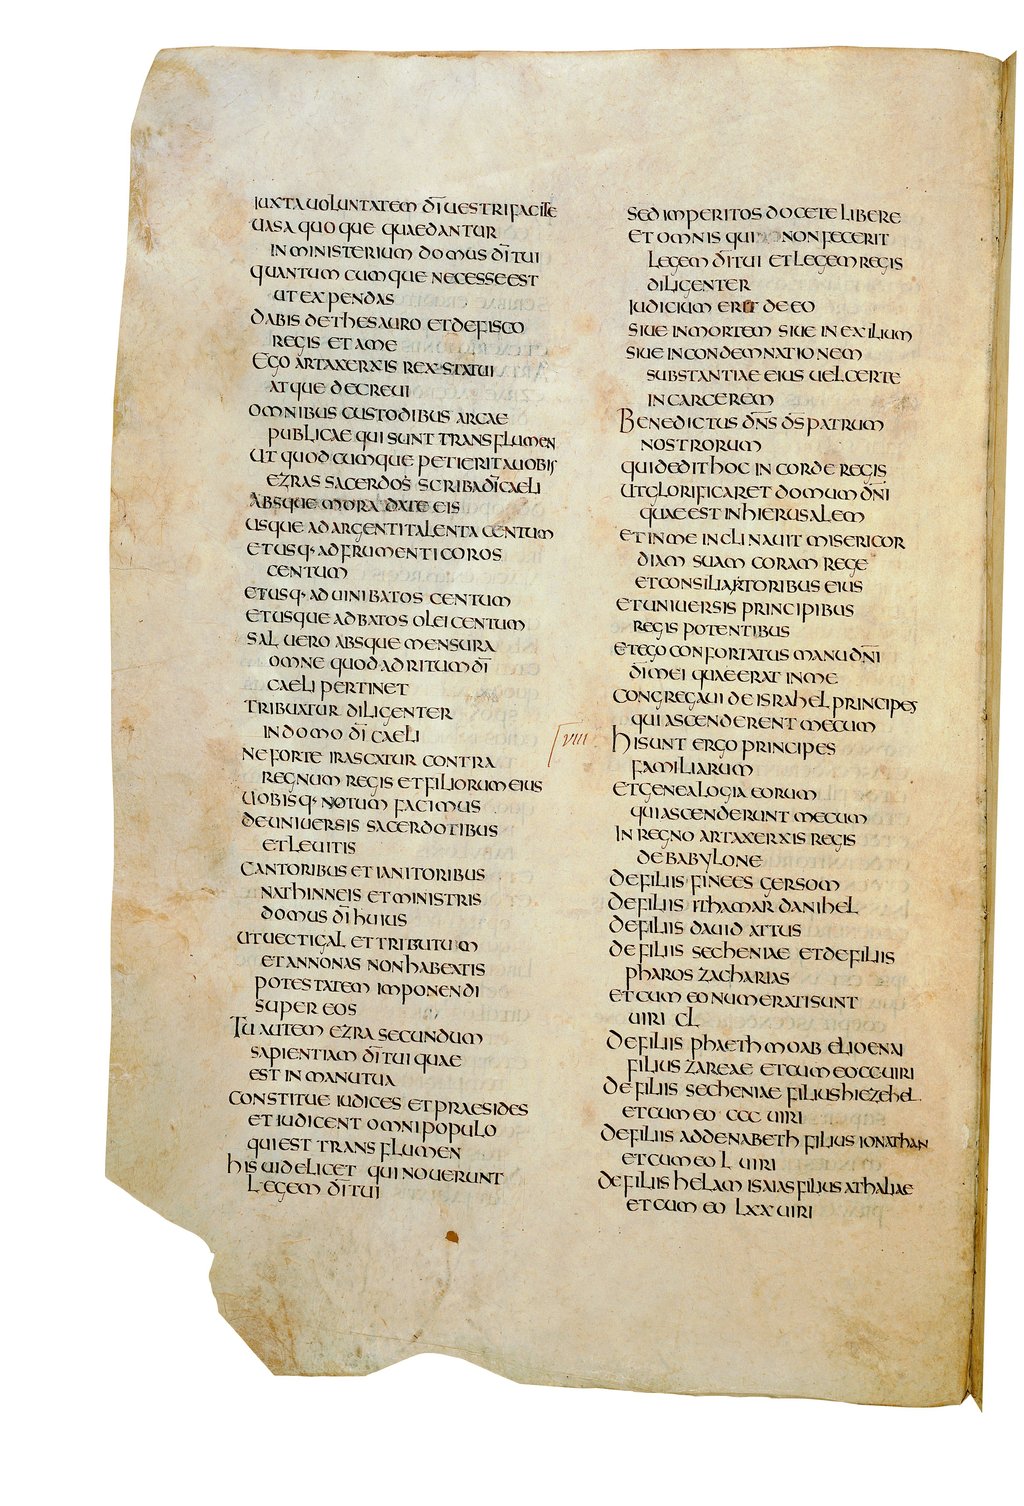 IUXTA UOLUNTATEM DĪ UESTRI FACITE
UASA QUOQUE QUAE DANTUR
IN MINISTERIUM DOMUS DĪ TUI
QUANTUM CUMQUE NECESSE EST
UT EXPENDAS
DABIS DE THESAURO ET DE FISCO
REGIS ET A ME
EGO ARTAXERXIS REX STATUI
ATQUE DECREUI
OMNIBUS CUSTODIBUS ARCAE
PUBLICAE QUI SUNT TRANS FLUMEN
UT QUODCUMQUE PETIERIT A UOBIS
EZRAS SACERDOS SCRIBA DĪ CAELI
ABSQUE MORA DATE EIS
USQUE AD ARGENTI TALENTA CENTUM
ET USQ· AD FRUMENTI COROS
CENTUM
ET USQ· AD UINI BATOS CENTUM
ET USQUE AD BATOS OLEI CENTUM
SAL UERO ABSQUE MENSURA
OMNE QUOD AD RITUM DĪ
CAELI PERTINET
TRIBUATUR DILIGENTER
IN DOMO DĪ CAELI
NE FORTE IRASCATUR CONTRA
REGNUM REGIS ET FILIORUM EIUS
UOBISQ· NOTUM FACIMUS
DE UNIUERSIS SACERDOTIBUS
ET LEUITIS
CANTORIBUS ET IANITORIBUS
NATHINNEIS ET MINISTRIS
DOMUS DĪ HUIUS
UT UECTIGAL ET TRIBUTUM
ET ANNONAS NON HABEATIS
POTESTATEM IMPONENDI
SUPER EOS
TU AUTEM EZRA SECUNDUM
SAPIENTIAM DĪ TUI QUAE
EST IN MANU TUA
CONSTITUE IUDICES ET PRAESIDES
ET IUDICENT OMNI POPULO
QUI EST TRANS FLUMEN
HIS UIDELICET QUI NOUERUNT
LEGEM DĪ TUI
SED IMPERITOS DOCETE LIBERE
ET OMNIS QUI NON FECERIT
LEGEM DĪ TUI ET LEGEM REGIS
DILIGENTER
IUDICIUM ERIT DE EO
SIUE IN MORTEM SIUE IN EXILIUM
SIUE IN CONDEMNATIONEM
SUBSTANTIAE EIUS UEL CERTE
IN CARCEREM
BENEDICTUS DN̄S D̄S PATRUM
NOSTRORUM
QUI DEDIT HOC IN CORDE REGIS
UT GLORIFICARET DOMUM DN̄I
QUAE EST IN HIERUSALEM
ET IN ME INCLINAUIT MISERICOR
DIAM SUAM CORAM REGE
ET CONSILIARTORIBUS EIUS
ET UNIUERSIS PRINCIPIBUS
REGIS POTENTIBUS
ET EGO CONFORTATUS MANU DN̄I
DĪ MEI QUAE ERAT IN ME
CONGREGAUI DE ISRAHEL PRINCIPES
QUI ASCENDERENT MECUM
VIII HI SUNT ERGO PRINCIPES
FAMILIARUM
ET GENEALOGIA EORUM
QUI ASCENDERUNT MECUM
IN REGNO ARTAXERXIS REGIS
DE BABYLONE
DE FILIIS FINEES GERSOM
DE FILIIS ITHAMAR DANIHEL
DE FILIIS DAUID ATTUS
DE FILIIS SECHENIAE ET DE FILIIS
PHAROS ZACHARIAS
ET CUM EO NUMERATI SUNT
UIRI CL
DE FILIIS PHAETH MOAB ELIOENAI
FILIUS ZAREAE ET CUM EO CC UIRI
DE FILIIS SECHENIAE FILIUS HIEZEHEL
ET CUM EO CCC UIRI
DE FILIIS ADDENABETH FILIUS IONATHAN
ET CUM EO L UIRI
DE FILIIS HELAM ISAIAS FILIUS ATHALIAE
ET CUM EO LXX UIRI